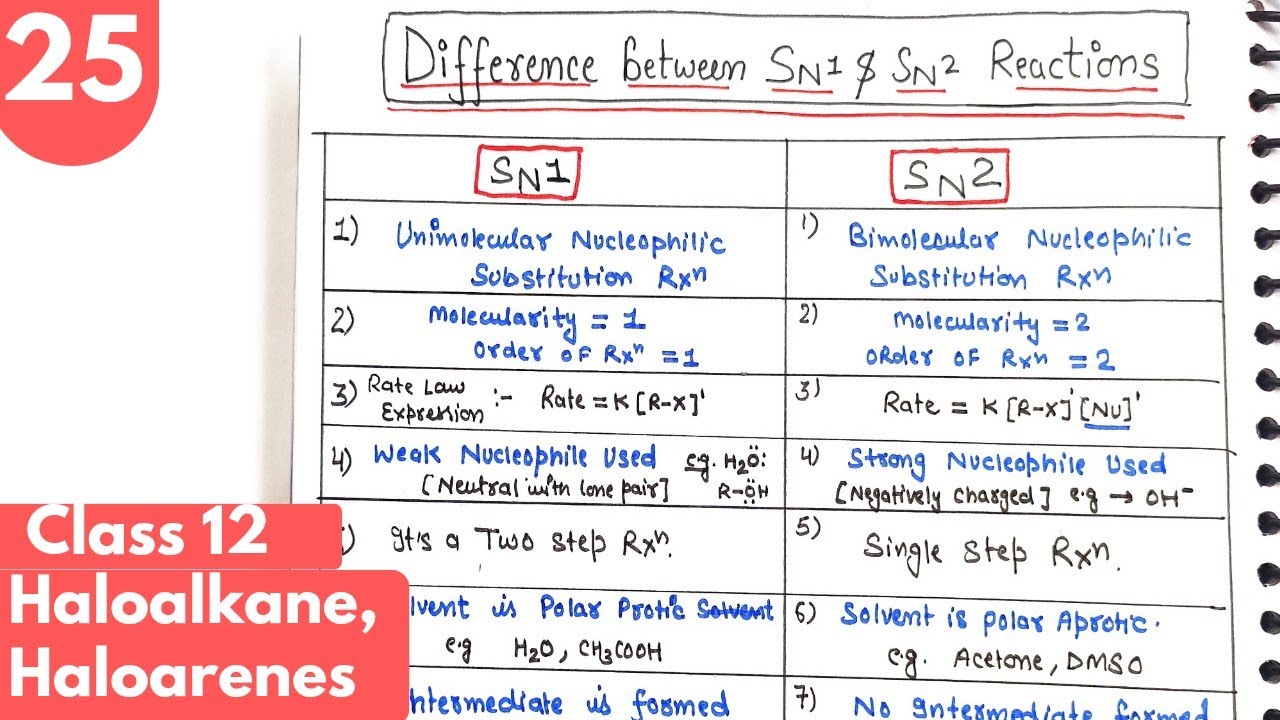 25
Difference between SN1 & SN2 Reactions
SN1
SN2
1) Unimolecular Nucleophilic
Substitution Rxⁿ
1) Bimolecular Nucleophilic
Substitution Rxⁿ
2) Molecularity = 1
Order of Rxⁿ = 1
2) Molecularity = 2
Order of Rxⁿ = 2
3) Rate Law
Expression :- Rate = K [R-X]'
3) Rate = K [R-X]' [Nu]'
4) Weak Nucleophile Used e.g. H₂O:
[Neutral with lone pair] R-OH
4) Strong Nucleophile Used
[Negatively charged] e.g → OH⁻
) It's a Two Step Rxⁿ.
5) Single Step Rxⁿ.
lvent is Polar Protic Solvent
e.g H₂O, CH₃COOH
6) Solvent is polar Aprotic.
e.g. Acetone, DMSO
ntermediate is formed
7) No Intermediate formed
Class 12
Haloalkane,
Haloarenes